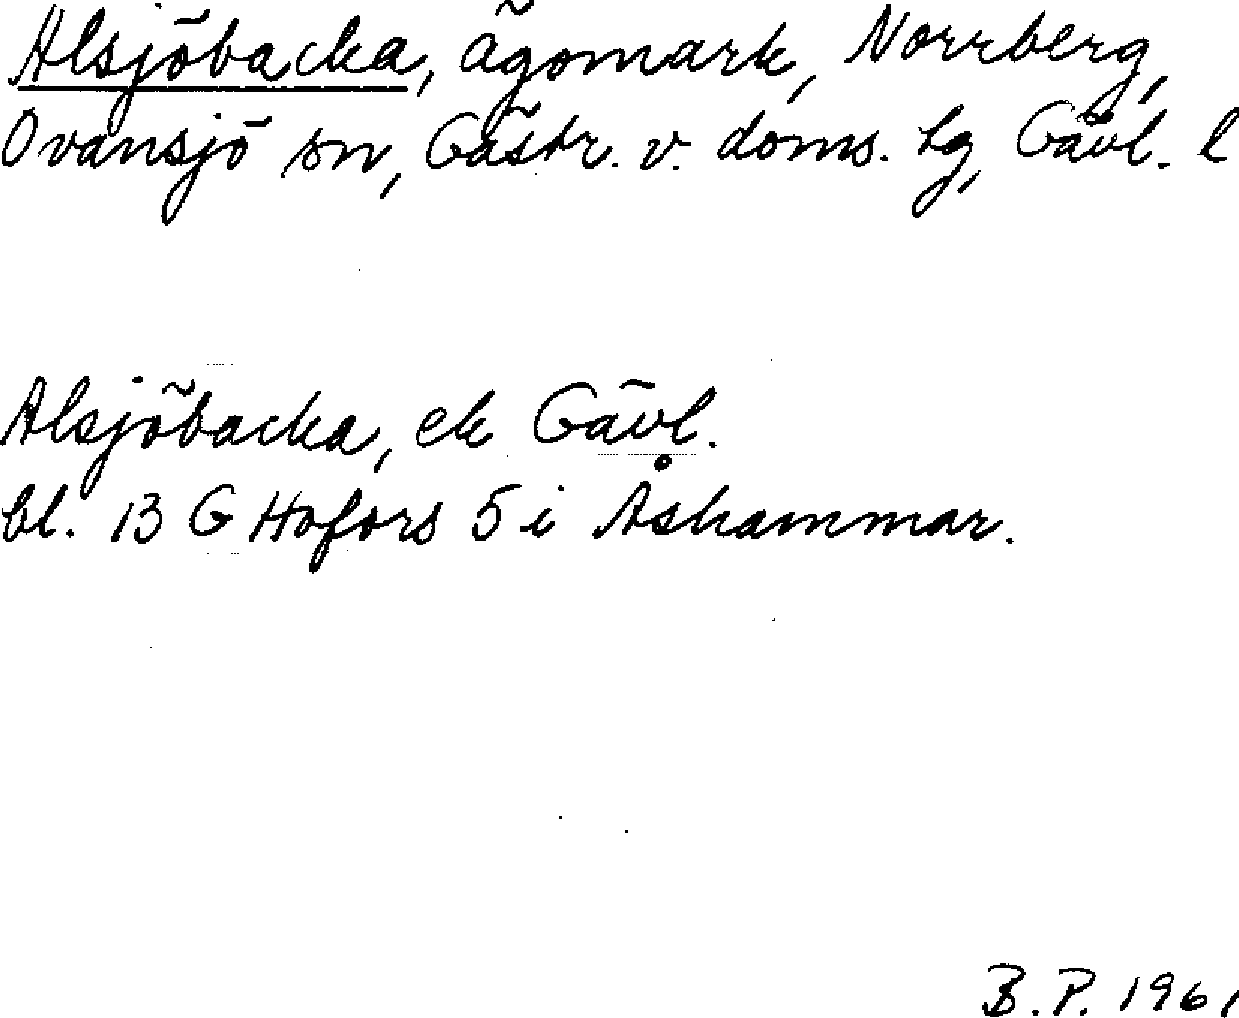 Alsjöbacka, ägomark, Norrberg,
Ovansjö sn, Gästr. v. doms. lg, Gävl. l
Alsjöbacka, ek Gävl.
bl. 13 G Hofors 5 i Åshammar.
B.P. 1961